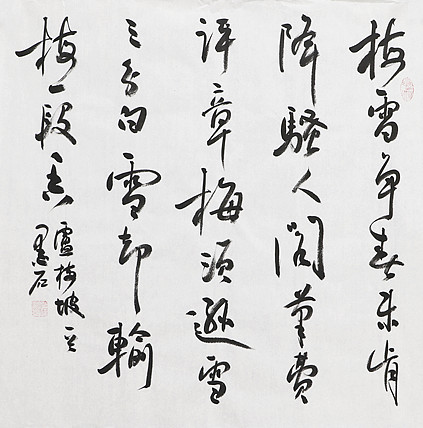 梅雪争春未肯
降騷人閣筆費
評章梅須遜雪
三分白雪却輸
梅一段香
盧梅坡
墨石